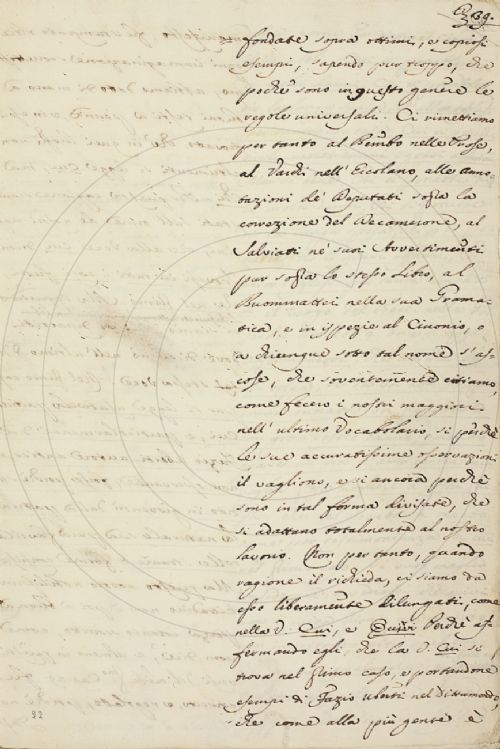 369.
fondate sopra ottimi, e copiosi
esempi, sapendo pur troppo, che
poche sono in questo genere le
regole universali. Ci rimettiamo
per tanto al Bembo nelle Prose,
al Varchi nell' Ercolano, alle Anno-
tazioni de' Deputati sopra la
correzione del Decamerone, al
Salviati ne' suoi Avvertimenti
pur sopra lo stesso Libro, al
Buommattei nella sua Grama-
tica, e in ispezie al Cinonio, o
a chiunque sotto tal nome s' as-
cose, che soventemente citiamo,
come fecero i nostri maggiori
nell' ultimo Vocabolario, sì perchè
le sue accuratissime osservazioni
il vagliono, e sì ancora perchè
sono in tal forma divisate, che
si adattano totalmente al nostro
lavoro. Non per tanto, quando
ragione il richieda, ci siamo da
esso liberamente dilungati, come
nella V. Cui, e Perchè af-
fermando egli, che la V. Cui si
trova nel primo caso, e portandone
esempi di Fazio Uberti nel Dittamondo,
che come alla più gente è
22